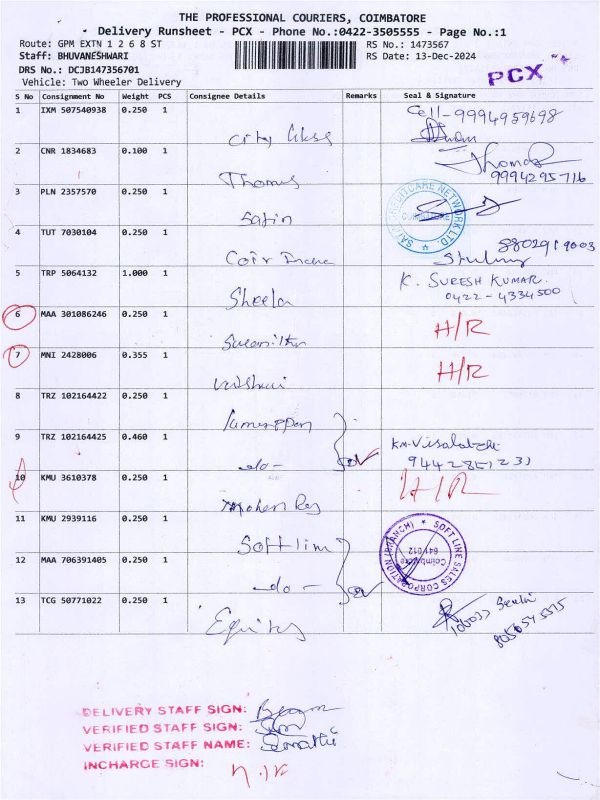 THE PROFESSIONAL COURIERS, COIMBATORE
Delivery Runsheet - PCX - Phone No.:0422-3505555 - Page No.:1
Route: GPM EXTN 1 2 6 8 ST
RS No.: 1473567
Staff: BHUVANESHWARI
RS Date: 13-Dec-2024
DRS No.: DCJB147356701
PCX
Vehicle: Two Wheeler Delivery
S No Consignment No Weight PCS Consignee Details Remarks Seal & Signature
1 IXM 507540938 0.250 1 Cell-9994959698
City
2 CNR 1834683 0.100 1 Thomas
Thomas 9994295716
3 PLN 2357570 0.250 1
Satin
SATIN CREDITCARE NETWORK LTD.
4 TUT 7030104 0.250 1
Coir
5 TRP 5064132 1.000 1 K. SURESH KUMAR
0422-4334500
Sheela
6 MAA 301086246 0.250 1 H/R
7 MNI 2428006 0.355 1 H/R
8 TRZ 102164422 0.250 1
9 TRZ 102164425 0.460 1
-do-
10 KMU 3610378 0.250 1 H/R
Mohan Raj
11 KMU 2939116 0.250 1
Softlim
SOFT LINE SALES CORPORATION (BRANCH)
Coimbatore
641 012
12 MAA 706391405 0.250 1
-do-
13 TCG 50771022 0.250 1
Equitas
DELIVERY STAFF SIGN:
VERIFIED STAFF SIGN:
VERIFIED STAFF NAME: Sumathi
INCHARGE SIGN: